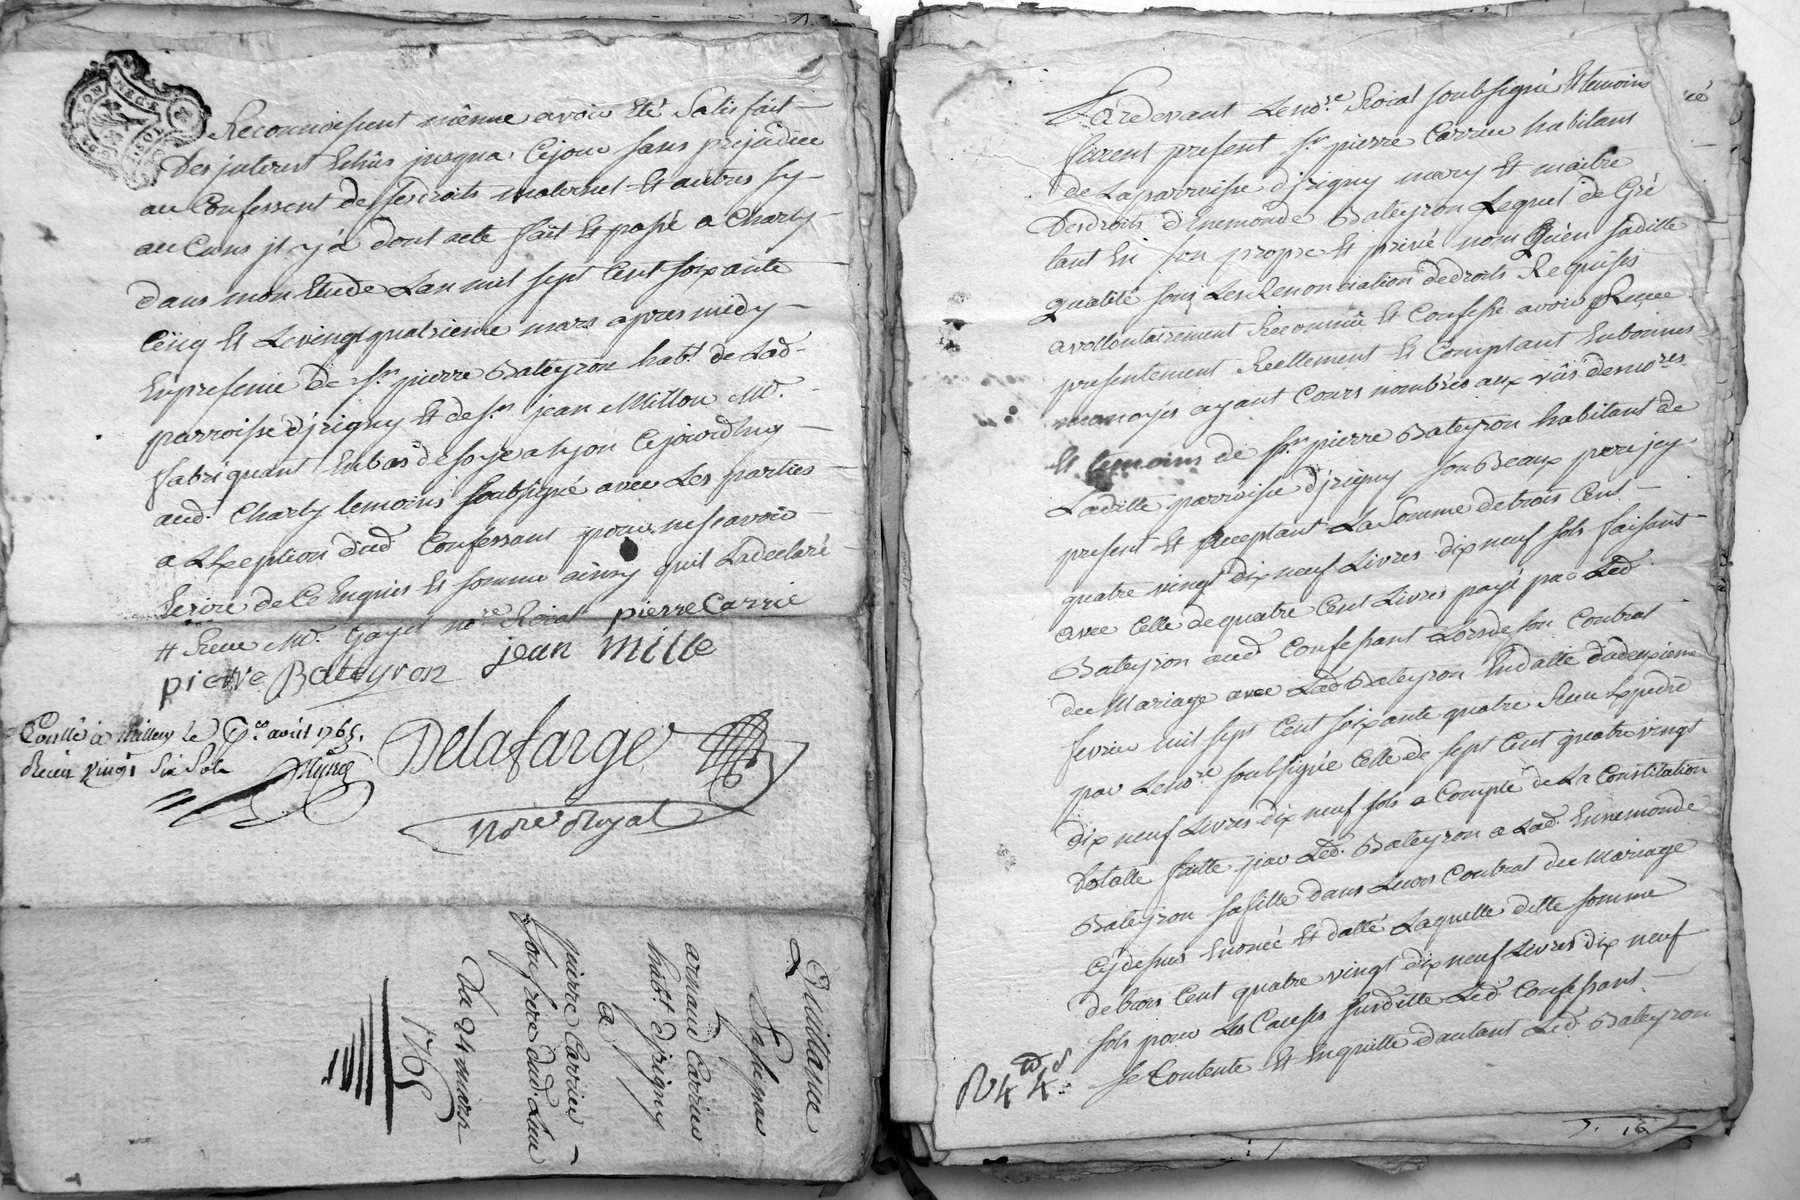 Reconnoissent même avoir Eté Satisfait
Des interest Echûs jusqua Cejour sans prejudice
au Confessent de ses droits maternel Et autres sy
aucuns jl y à dont acte fait Et passé a Charly
dans mon Etude Lan mil sept Cent soixante
Cinq Et Le vingt quatrieme mars apres midy
En presence de Sr. pierre Bateyron habt. de Lad.
parroisse d'jrigny Et de Sr. jean Millou Md.
fabriquant En bas de soye a Lyon Cejourdhuy
aud. Charly temoins soubsigné avec Les parties
a Lexeption dud Confessant pour ne scavoir
Ecrire de Ce Enquis Et sommé ainsy quil La declaré
# Receu Me. Gayet nore. Roial pierre Carrie
pierre Bateyron jean Mille
Conllé à Millery le avril 1765.
Receu vingt Six Sols
Delafarge
Nore Royal
Quittance
arnaud Carrieu
habt. djrigny
a
pierre Carrieu
son frere dud. Lieu
Du 24 mars
1765
Pardevant Le nore. Roial soubsigné Et temoins
furent present Sr. pierre Carrieu habitant
de La parroisse d'jrigny mary Et maitre
Des droits d'Enemonde Bateyron Lequel de Gré
tant En son propre Et privé nom Qu'en saditte
qualité sous Les Renonciation de droits Requises
a vollontairement Reconnû Et Confessé avoir Receu
presentement Reellement Et Comptant En bonnes
monoyes ayant Cours nombrés aux vûs de nores
Et temoins de Sr. pierre Bateyron habitant de
Laditte parroisse d'jrigny son Beaux pere jcy
present Et acceptant La Somme de trois Cent
quatre vingt dix neuf Livres dix neuf sols faisant
avec Celle de quatre Cent Livres payé par Led.
Bateyron aud Confessant Lors de son Contrat
de Mariage avec Lad Bateyron En datte du deuxieme
fevrier mil sept Cent soixante quatre Receu
par Le nore soubsigné Celle de sept Cent quatre vingt
dix neuf Livres dix neuf sols a Compte de La Constitution
totalle faitte par Led. Bateyron a Lad. Ennemonde
Bateyron sa fille dans Leurs Contrat de Mariage
Cy dessus Enoncé Et datté Laquelle ditte somme
de trois Cent quatre vingt dix neuf Livres dix neuf
sols pour Les Causes susditte Led. Confessant
se Contente Et En quitte dautant Led. Bateyron